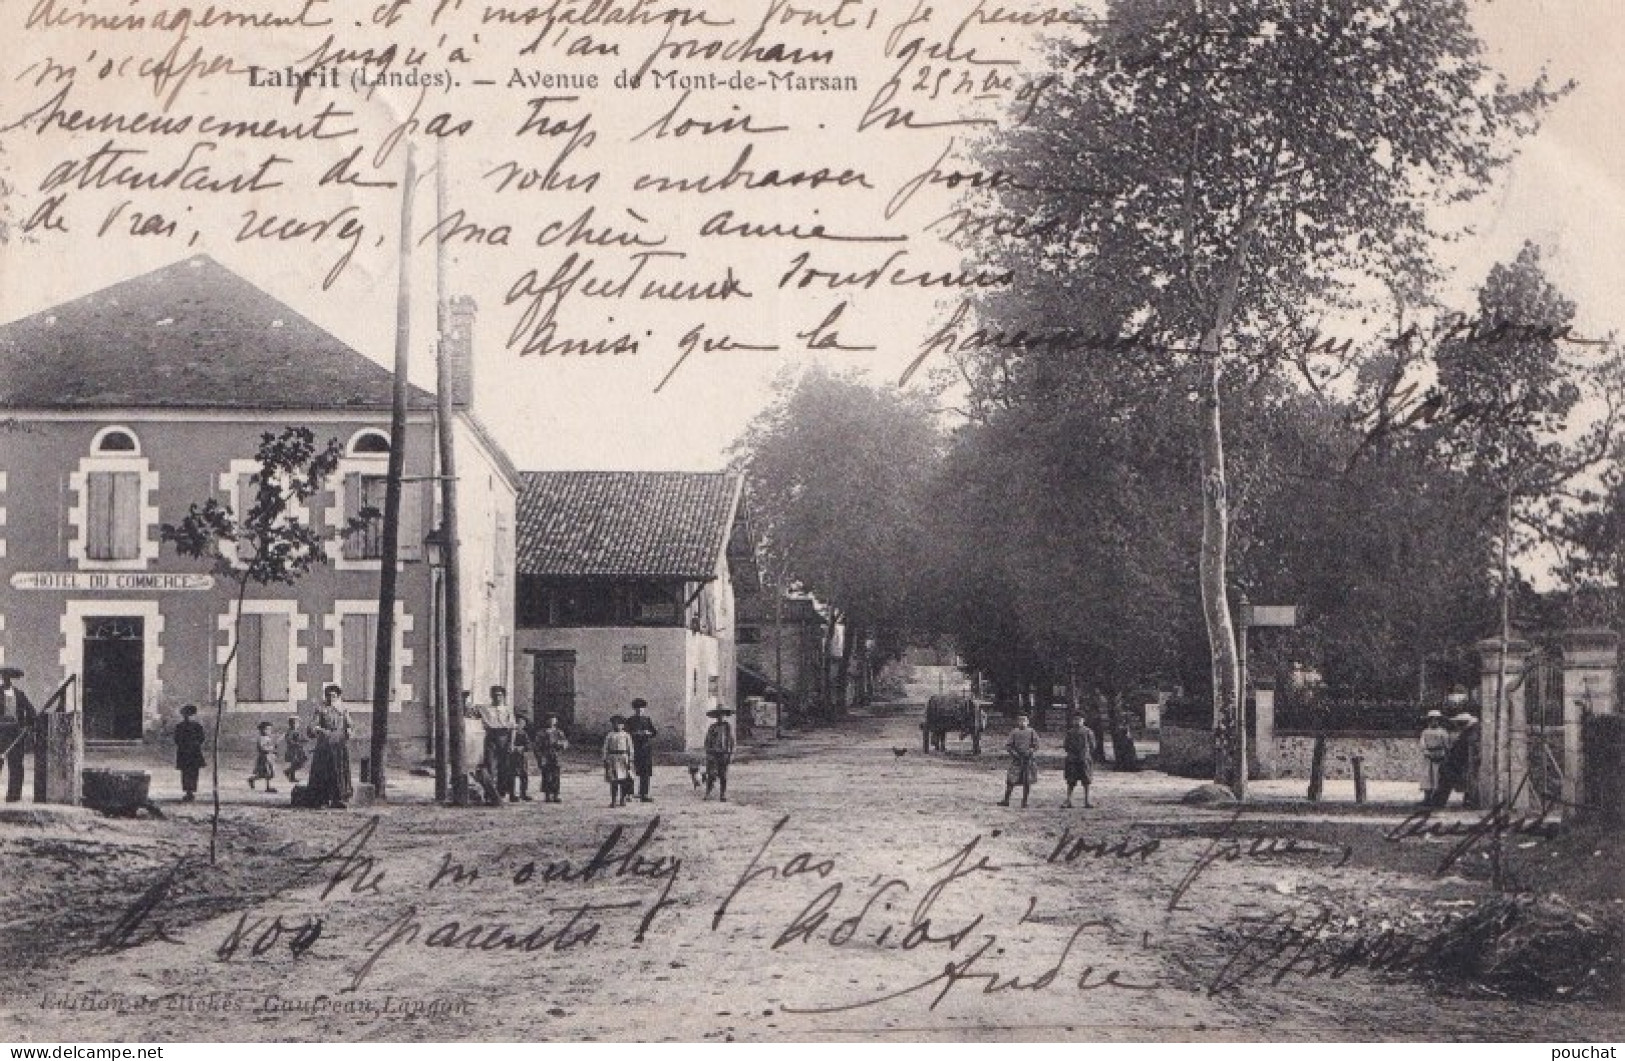 déménagement et l'installation vont, je pense
m'occuper jusqu'à l'an prochain qui
Labrit (Landes). — Avenue de Mont-de-Marsan
25 9bre 05
heureusement pas trop loin. En
attendant de vous embrasser pour
de vrai, recevez, ma chère amie mes
affectueux souvenirs
Ainsi que la
HOTEL DU COMMERCE
Ne m'oubliez pas, je vous prie, auprès
de vos parents. Adios!
André
Edition de clichés Gautreau, Langon
delcampe.net
pouchat